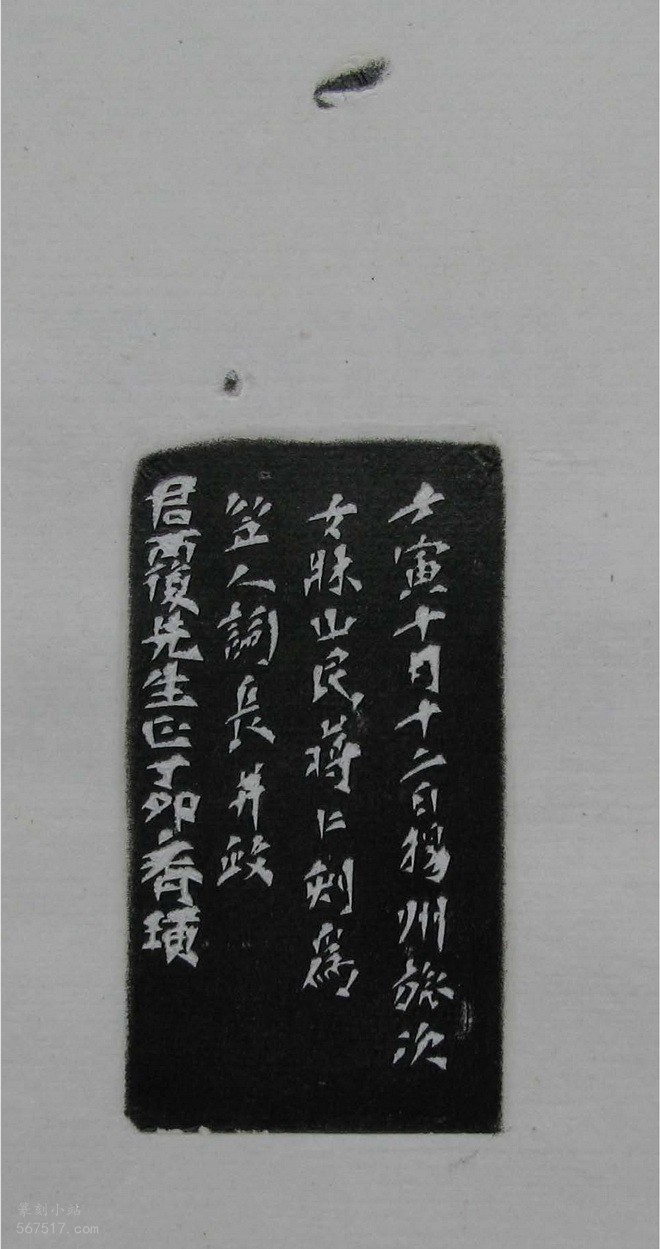 壬寅十月十二日揚州旅次
女牀山民蔣仁刻爲
笠人詞長并政
君 復先生正丁卯齊璜
篆刻小站
567517.com